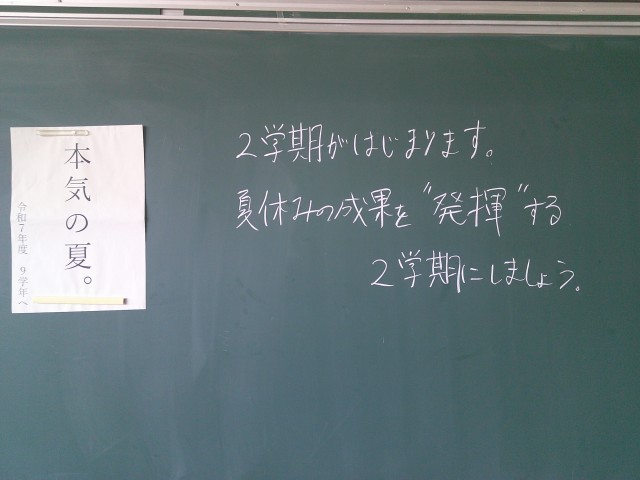 本気の夏。
令和7年度　9学年へ
2学期がはじまります。
夏休みの成果を"発揮"する
2学期にしましょう。